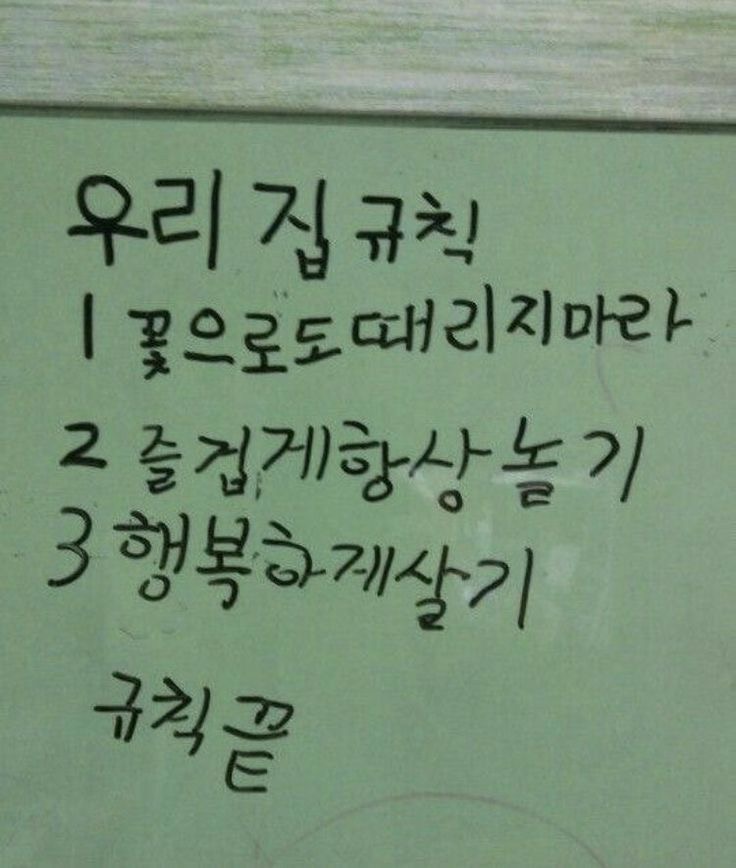 우리 집 규칙
1 꽃으로도때리지마라
2 즐겁게항상놀기
3 행복하게살기
규칙끝